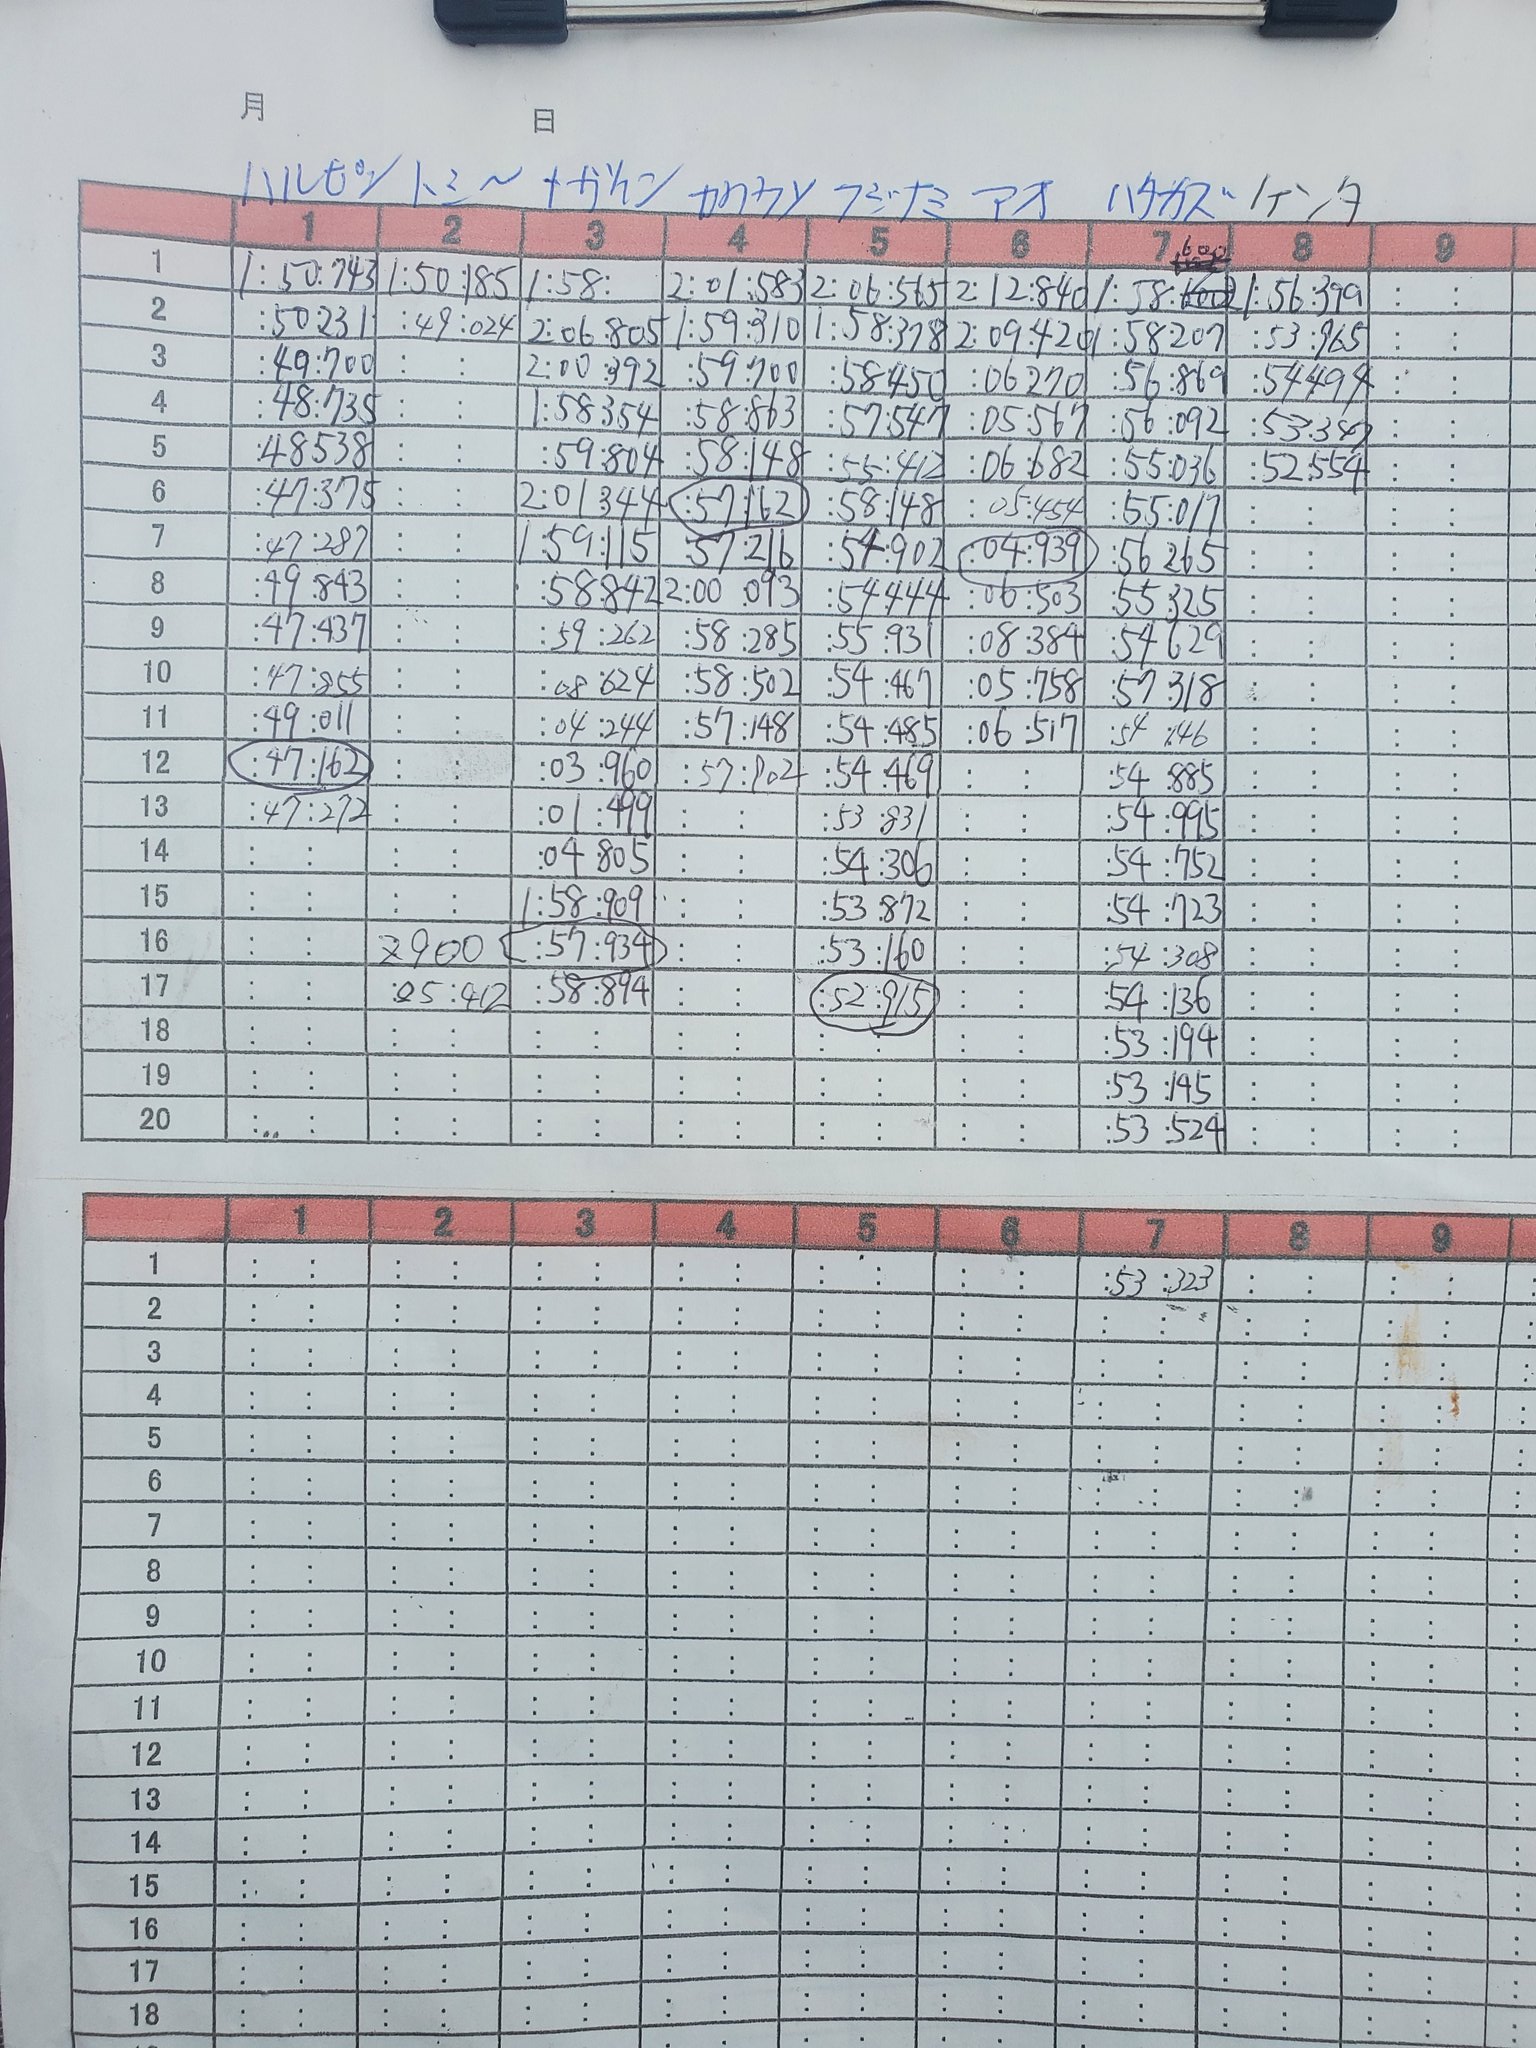 月 日
ハルピン トミー メガケン カワウソ フジナミ アオ ハタカズ ケンタ
1 2 3 4 5 6 7 8 9
600
1 1:50:743 1:50:185 1:58: 2:01:583 2:06:565 2:12:840 1:58: 1:56:399
2 :50:231 :49:024 2:06:805 1:59:310 1:58:378 2:09:420 1:58:207 :53:965
3 :49:700 : : 2:00:392 :59:700 :58:450 :06:270 :56:869 :54:494 : :
4 :48:735 : : 1:58:354 :58:863 :57:547 :05:567 :56:092 :53:347 : :
5 :48:538 : : :59:804 :58:148 :55:412 :06:682 :55:036 :52:554 : :
6 :47:375 : : 2:01:344 :57:162 :58:148 :05:454 :55:017 : : : :
7 :47:287 : : 1:59:115 :57:216 :54:902 :04:939 :56:265 : : : :
8 :49:843 : : :58:842 2:00:093 :54:444 :06:503 :55:325 : : : :
9 :47:437 : : :59:262 :58:285 :55:931 :08:384 :54:629 : : : :
10 :47:855 : : :08:624 :58:502 :54:467 :05:758 :57:318 : : : :
11 :49:011 : : :04:244 :57:148 :54:485 :06:517 :54:146 : : : :
12 :47:162 : : :03:960 :57:902 :54:469 : : :54:885 : : : :
13 :47:272 : : :01:499 : : :53:831 : : :54:995 : : : :
14 : : : : :04:805 : : :54:306 : : :54:752 : : : :
15 : : : : 1:58:909 : : :53:872 : : :54:723 : : : :
16 : : 2900 :57:934 : : :53:160 : : :54:308 : : : :
17 : : :05:412 :58:894 : : :52:915 : : :54:136 : : : :
18 : : : : : : : : : : : : :53:194 : : : :
19 : : : : : : : : : : : : :53:145 : : : :
20 : : : : : : : : : : : : :53:524 : : : :
1 2 3 4 5 6 7 8 9
1 : : : : : : : : : : : : :53:323 : : : :
2 : : : : : : : : : : : : : : : : : :
3 : : : : : : : : : : : : : : : : : :
4 : : : : : : : : : : : : : : : : : :
5 : : : : : : : : : : : : : : : : : :
6 : : : : : : : : : : : : : : : : : :
7 : : : : : : : : : : : : : : : : : :
8 : : : : : : : : : : : : : : : : : :
9 : : : : : : : : : : : : : : : : : :
10 : : : : : : : : : : : : : : : : : :
11 : : : : : : : : : : : : : : : : : :
12 : : : : : : : : : : : : : : : : : :
13 : : : : : : : : : : : : : : : : : :
14 : : : : : : : : : : : : : : : : : :
15 : : : : : : : : : : : : : : : : : :
16 : : : : : : : : : : : : : : : : : :
17 : : : : : : : : : : : : : : : : : :
18 : : : : : : : : : : : : : : : : : :